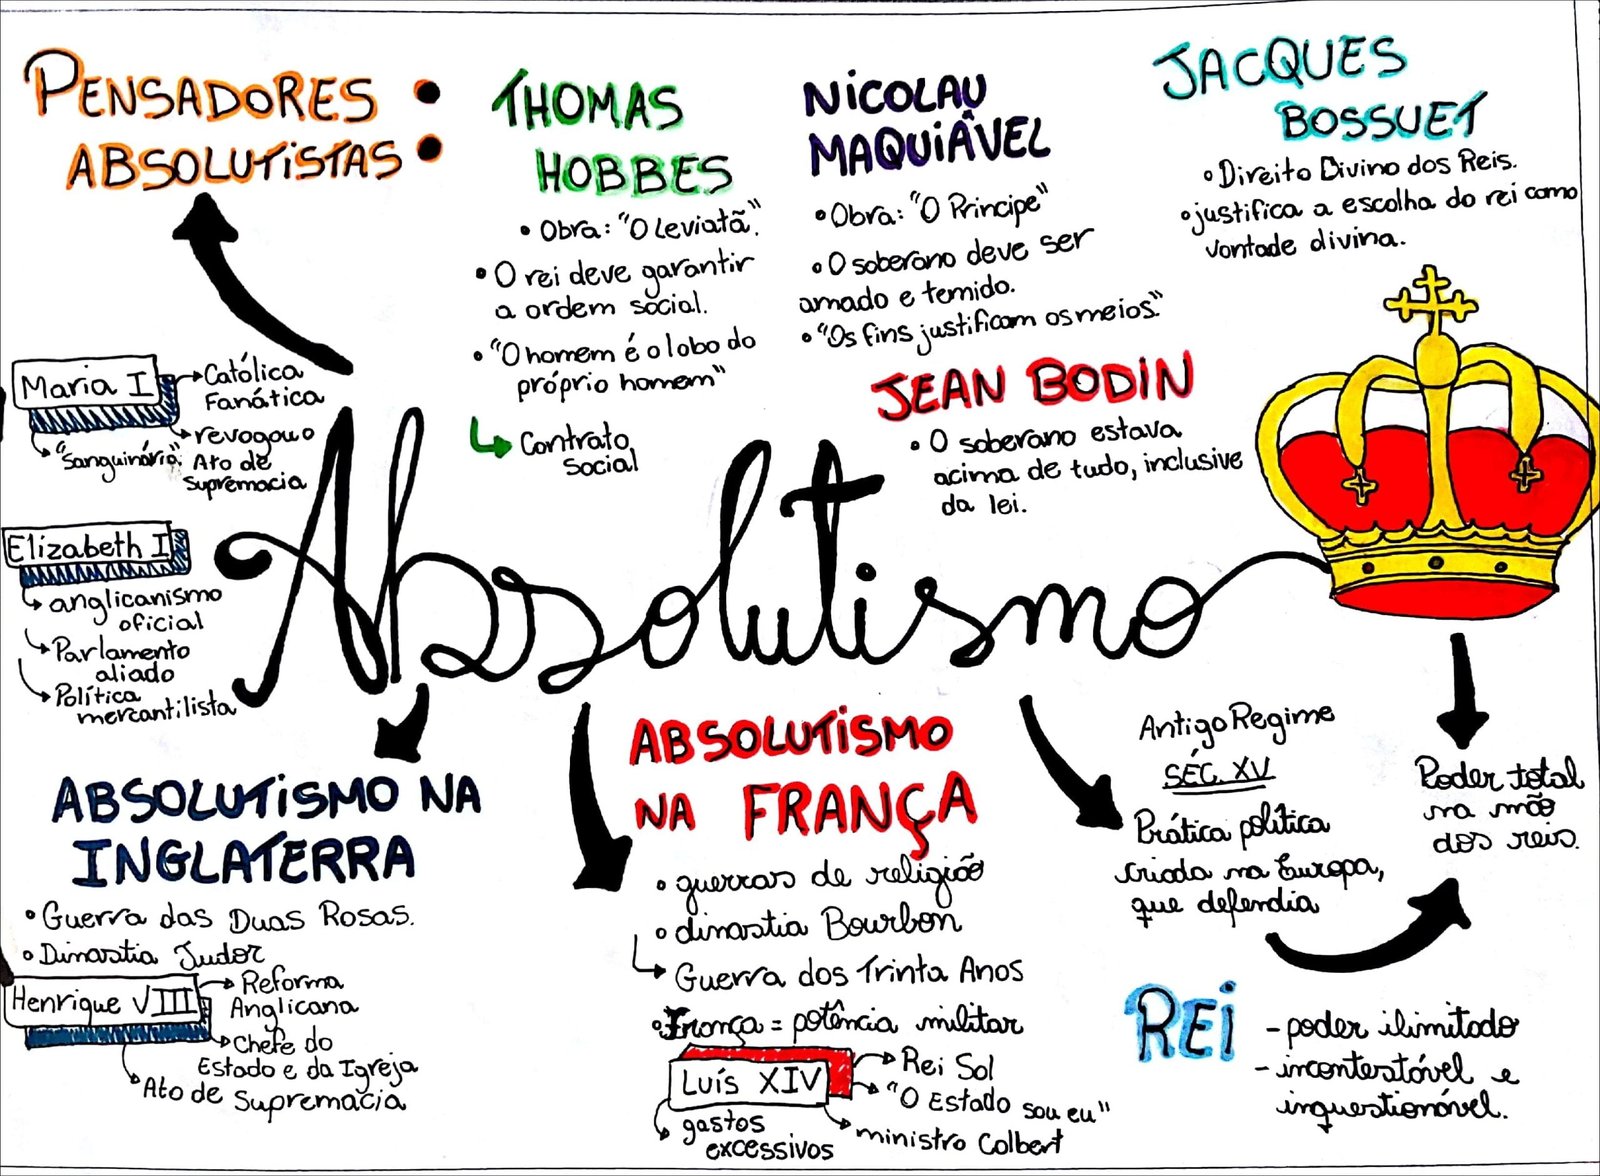 PENSADORES
ABSOLUTISTAS
THOMAS
HOBBES
• Obra: "O Leviatã".
• O rei deve garantir
a ordem social.
• "O homem é o lobo do
próprio homem"
Contrato
social
NICOLAU
MAQUIÂVEL
• Obra: "O Principe"
• O soberano deve ser
amado e temido.
• "Os fins justificam os meios."
JACQUES
BOSSUET
• Direito Divino dos Reis.
• justifica a escolha do rei como
vontade divina.
JEAN BODIN
• O soberano estava
acima de tudo, inclusive
da lei.
Maria I
Católica
Fanática
revogou o
Ato de
supremacia
"Sanguinária".
Elizabeth I
anglicanismo
oficial
Parlamento
aliado
Política
mercantilista
Absolutismo
ABSOLUTISMO NA
INGLATERRA
• Guerra das Duas Rosas.
• Dinastia Tudor
Henrique VIII
Reforma
Anglicana
Chefe do
Estado e da Igreja
Ato de Supremacia
ABSOLUTISMO
NA FRANÇA
• guerras de religião
• dinastia Bourbon
Guerra dos Trinta Anos
• França = potência militar
Luís XIV
Rei Sol
"O Estado sou eu"
ministro Colbert
gastos
excessivos
Antigo Regime
SÉC. XV
Prática política
criada na Europa,
que defendia
Poder total
na mão
dos reis.
REI
- poder ilimitado
- incontestável e
inquestionável.